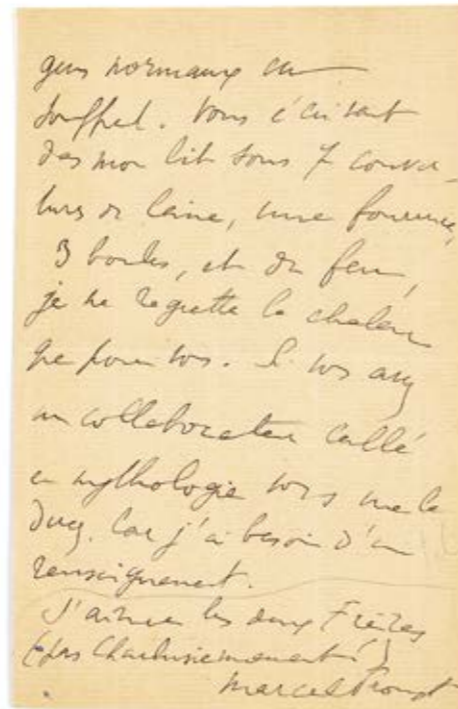 gens normaux en
souffrent. Vous écrivant
dans mon lit sous 7 couver-
tures de laine, une fourrure,
3 boules, et du feu,
je ne regrette la chaleur
que pour vous. Si vous avez
un collaborateur callé
en mythologie vous me le
direz. Car j'ai besoin d'un
renseignement.
J'aime les deux Frères
(pas Charlusiennement!)
Marcel Proust